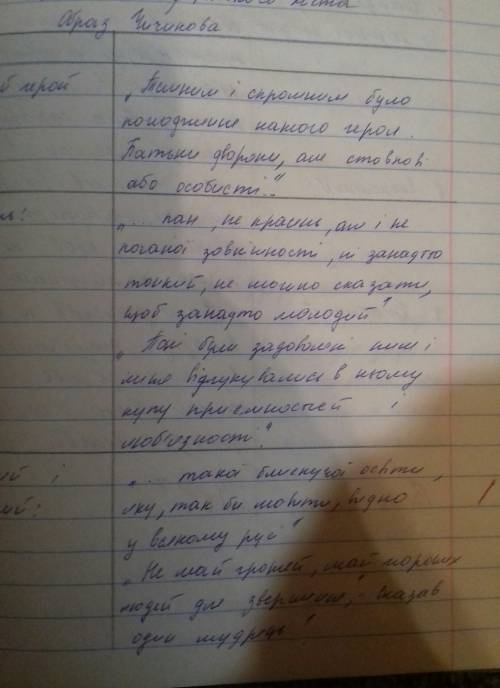 Образ Чичикова
й герой
„Темним і скромним було
походження нашого героя.
Батьки дворяни, але стовпові
або особисті.."
ь:
„... пан, не красень, ал і не
поганої зовнішності, ні занадто
тонкий, не можно сказати,
щоб занадто молодий"
„Пані були задоволені ним і
відшукувались в ньому
купу приємностей і
люб'язності."
ий і
ий:
„... такої блискучої освіти,
яку, так би мовити, видно
у всякому русі"
„Не май грошей, май хороших
людей для звернення, - сказав
один мудрець"